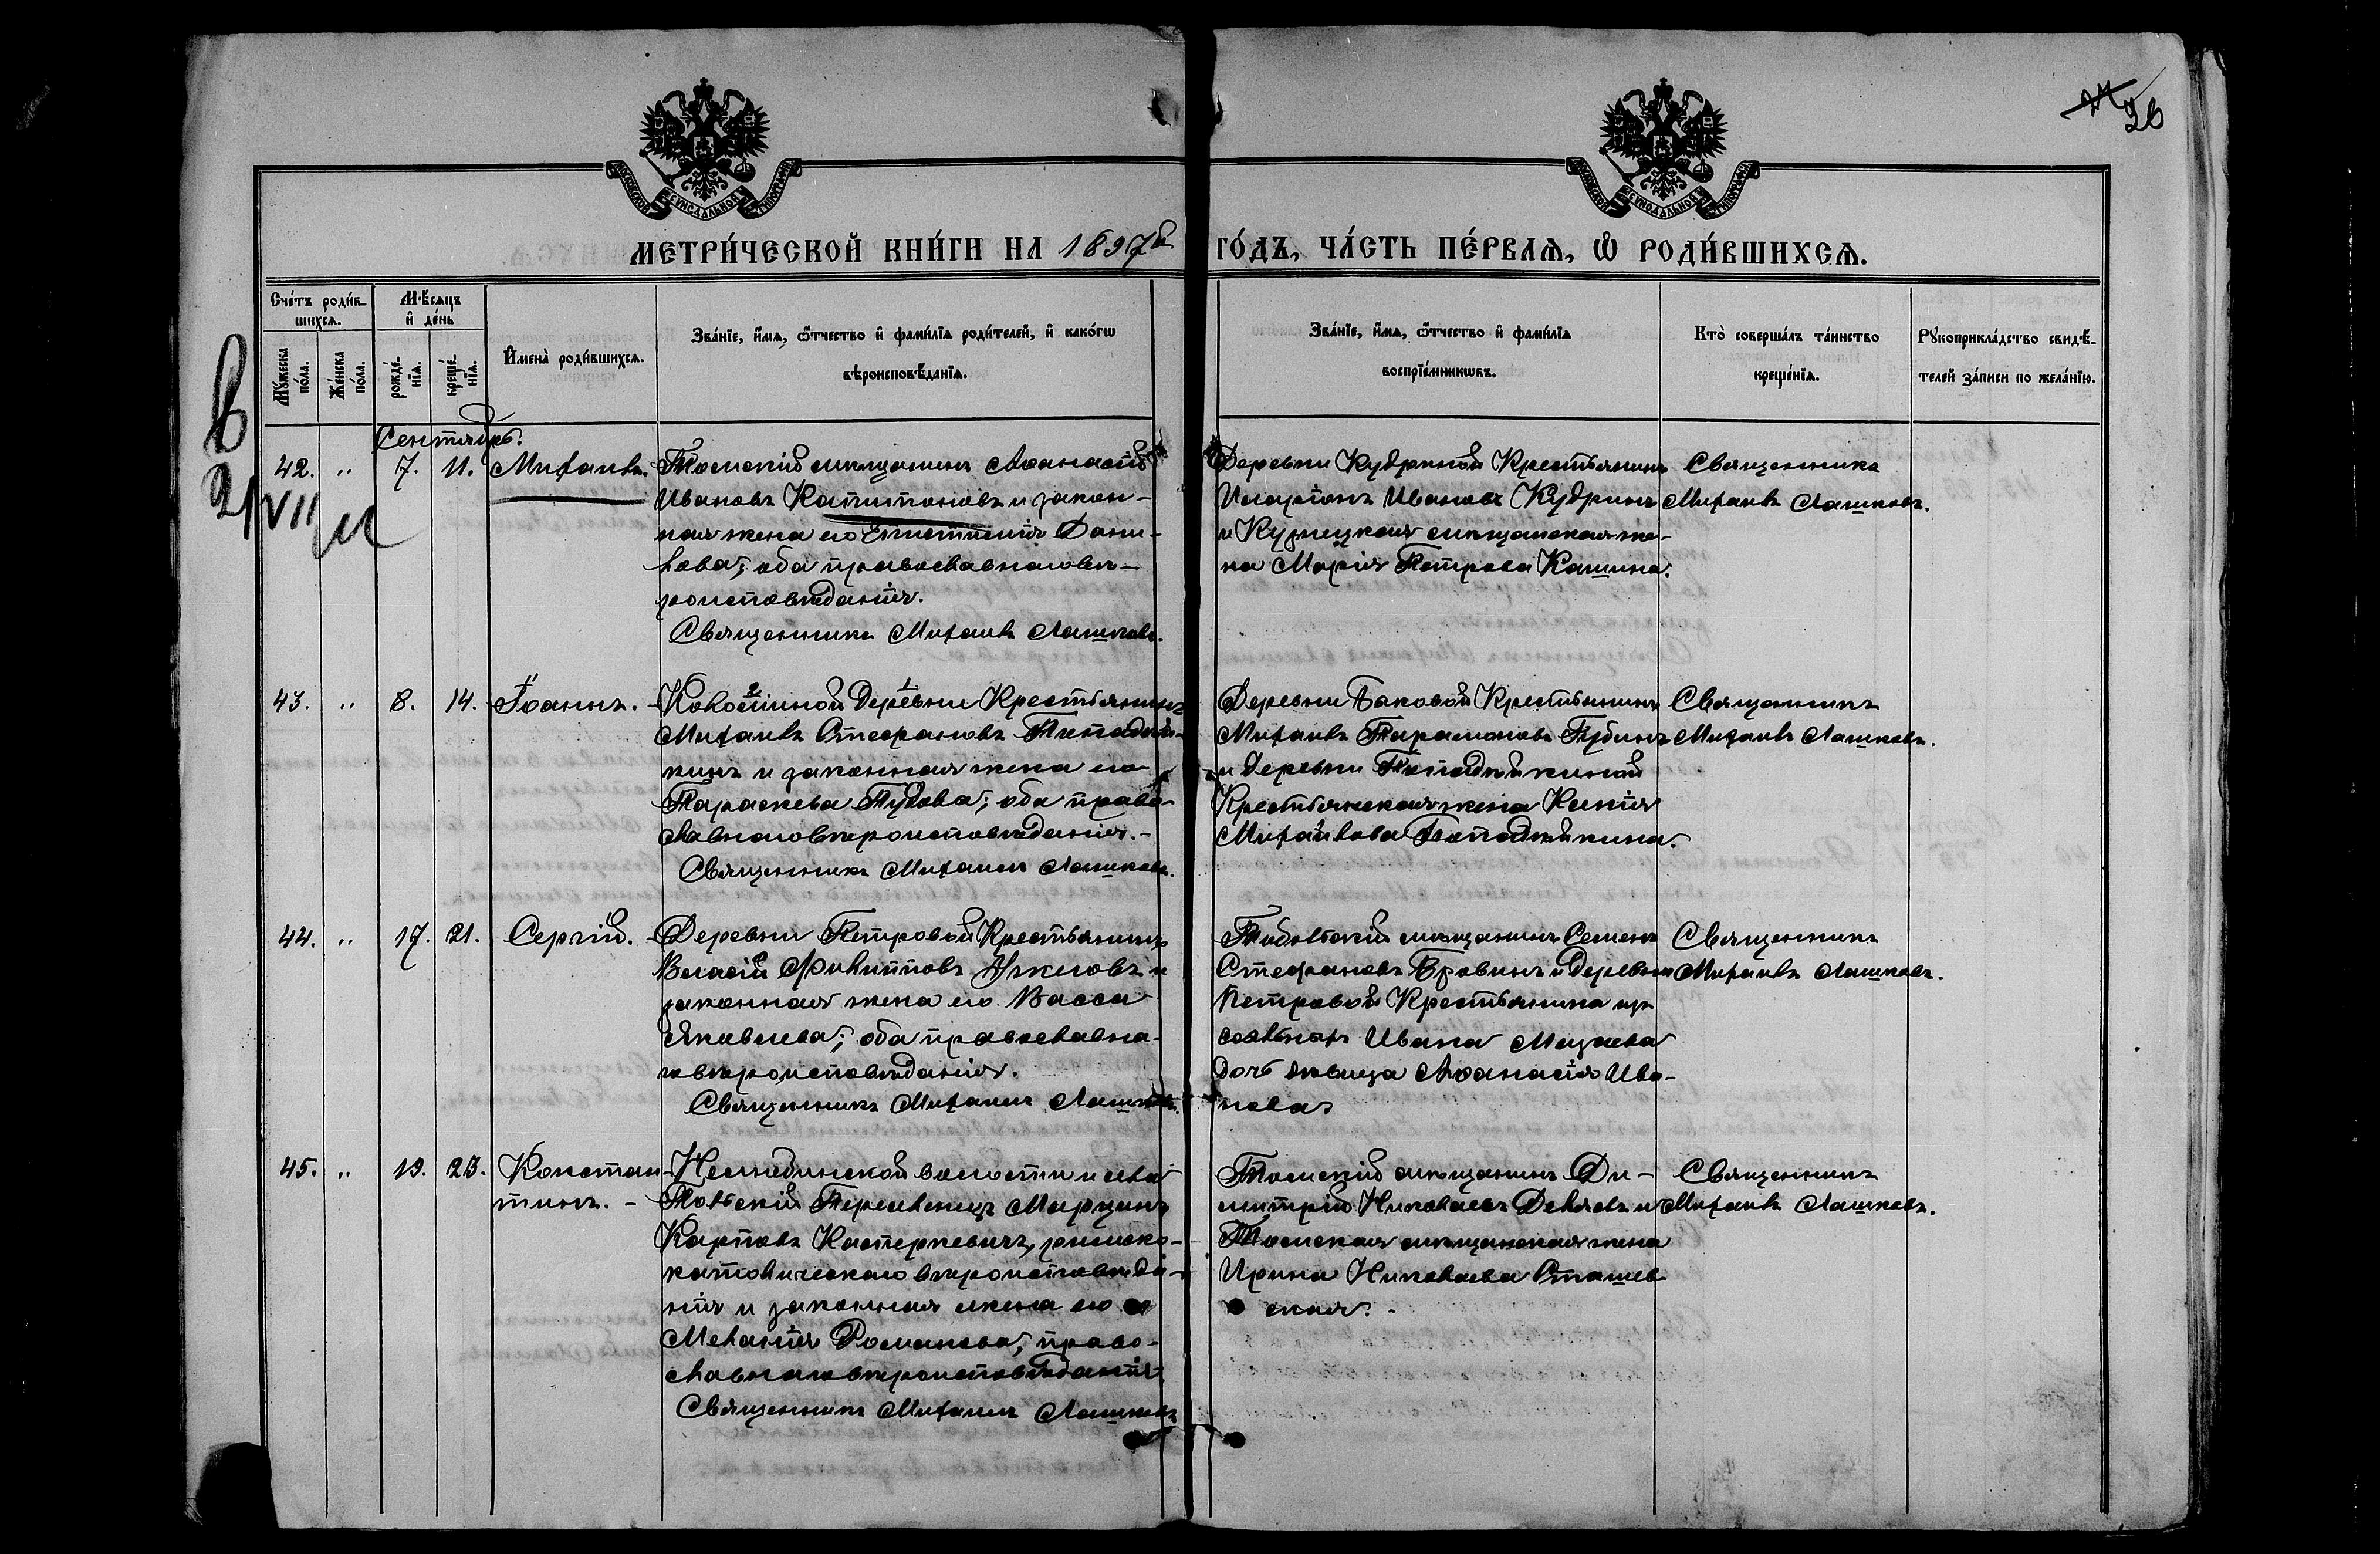 26
МОСКОВСКОЙ СѴНОДАЛЬНОЙ ТИПОГРАФІИ
МОСКОВСКОЙ СѴНОДАЛЬНОЙ ТИПОГРАФІИ
МЕТРИ́ЧЕСКОЙ КНИ́ГИ НА 1897й ГО́ДЪ, ЧА́СТЬ ПЕ́РВАѦ, Ѡ҆ РОДИ́ВШИХСѦ.
Сче́тъ роди́в-
шихсѧ.
Мꙋ́жеска по́ла.
Же́нска по́ла.
Мѣ́сѧцъ
и҆ де́нь
рожде́-
нїѧ.
креще́-
нїѧ.
И҆мена̀ роди́вшихсѧ.
Зва́нїе, и҆́мѧ, ѻ҆́тчество и҆ фами́лїѧ роди́телей, и҆ како́гѡ
вѣроисповѣ́данїѧ.
Зва́нїе, и҆́мѧ, ѻ҆́тчество и҆ фами́лїѧ
воспрїе́мникѡвъ.
Кто̀ соверша́лъ та́инство
креще́нїѧ.
Рꙋкоприкла́дство свидѣ́-
телей за́писи по жела́нїю.
В
Сентябрь.
42. " 7. 11. Михаилъ.
Томскій мѣщанинъ Аѳанасій
Ивановъ Капитоновъ и закон-
ная жена его Дани-
лова; оба православнаго вѣ-
роисповѣданія.
Священникъ Михаилъ Лашковъ.
Деревни Кудриной Крестьянинъ
Иларіонъ Ивановъ Кудринъ
и Кузнецкая мѣщанская же-
на Марія Петрова Кашина.
Священникъ
Михаилъ Лашковъ.
43. " 8. 14. Іоаннъ.
Деревни Крестьянинъ
Михаилъ Стефановъ
кинъ и законная жена его
Параскева Тудова; оба право-
славнаго вѣроисповѣданія.-
Священникъ Михаилъ Лашковъ.
Деревни Баковой Крестьянинъ
Михаилъ Парамоновъ Губинъ
и деревни
Крестьянская жена Ксенія
Михайлова
Священникъ
Михаилъ Лашковъ.
44. " 17. 21. Сергій.
Деревни Петровой Крестьянинъ
Власій Филипповъ и
законная жена его Васса
Яковлева; оба православна-
го вѣроисповѣданія.
Священникъ Михаилъ Лашковъ.
Тобольскій мѣщанинъ Семенъ
Стефановъ и деревни
Петровой Крестьянина изъ
ссыльныхъ Ивана Мазаева
дочь дѣвица Аѳанасія Ива-
нова
Священникъ
Михаилъ Лашковъ.
45. " 19. 23. Констан-
тинъ. -
волости
Польскій Переселенецъ Марцинъ
Карповъ Касперкевичъ, римско-
католическаго вѣроисповѣда-
нія и законная жена его
Меланія Романова, право-
славнаго вѣроисповѣданія
Священникъ Михаилъ Лашковъ
Томскій мѣщанинъ Ди-
митрій Николаевъ и
Томская мѣщанская жена
Ирина Николаева Сташев-
ская. -
Священникъ
Михаилъ Лашковъ.